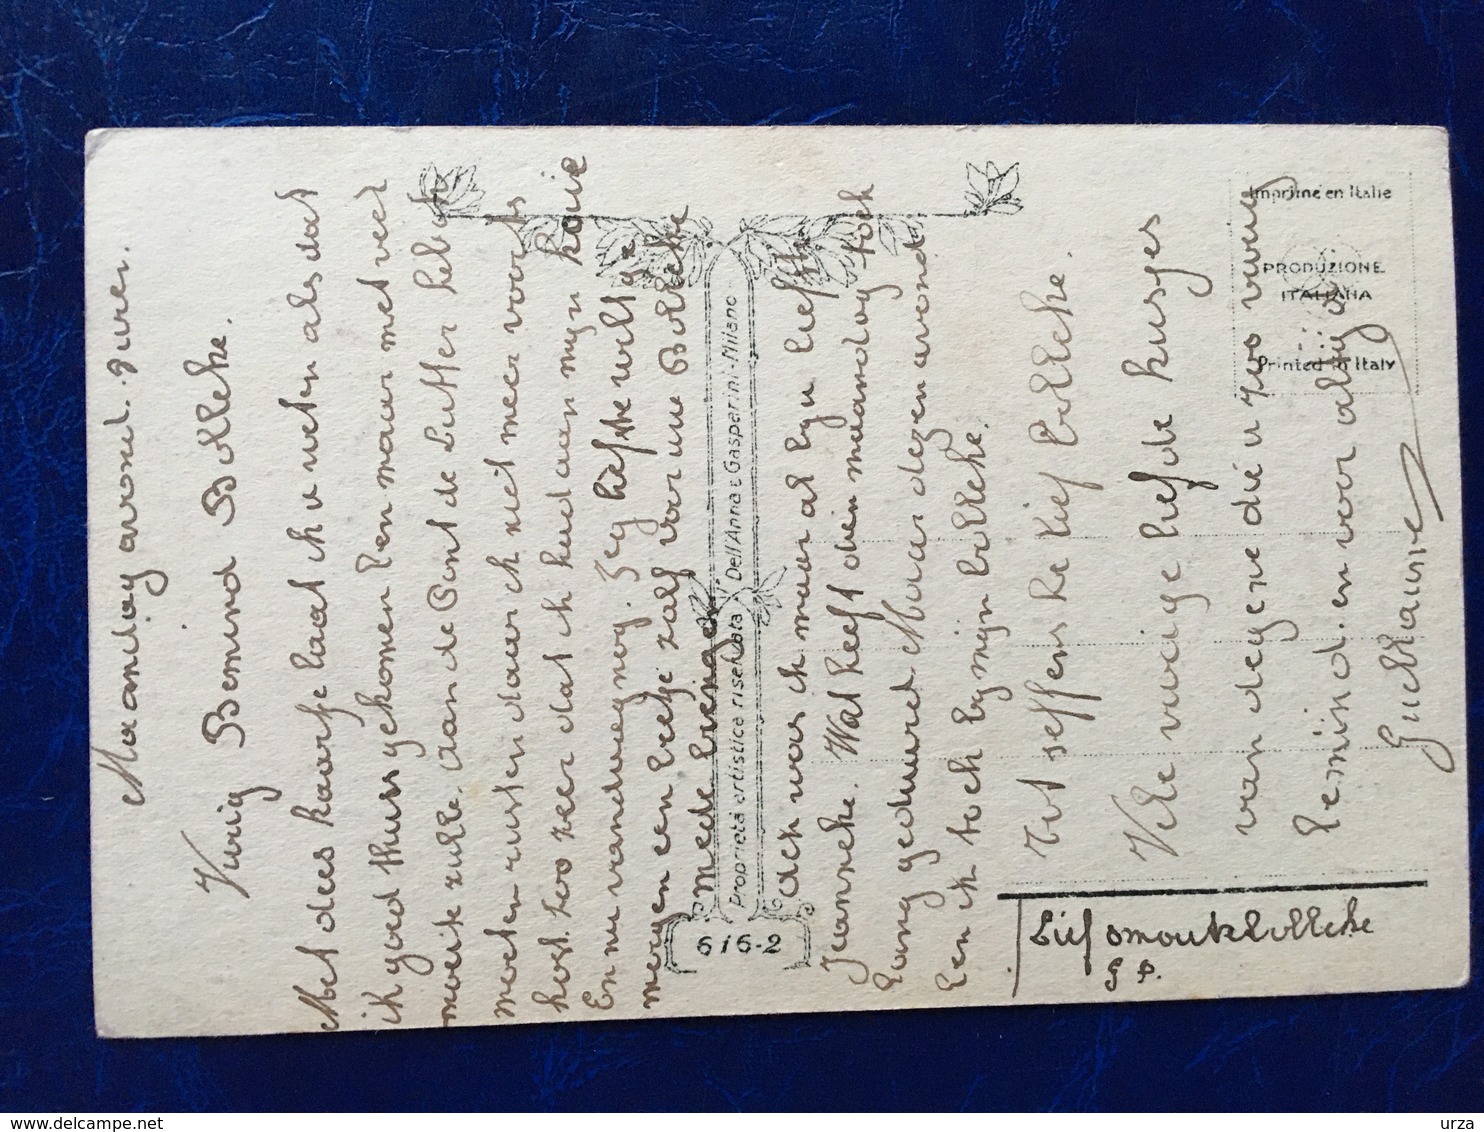 Maandag avond. 9 uren.
Vurig Bemind Bolleke.
Met dees kaartje laat ik u weten als dat
ik goed thuis gekomen ben maar met veel
moeite zulle. Aan de Pont de Lutter heb ik
moeten rusten daar ik niet meer voorts
kost. zoo zeer dat ik had aan mijn knie
En nu vandaag nog. Zeg liefste wilt ge
morgen een betje zalf voor uw Bolleke
mede brengen
ach was ik maar al by u liefste
Jeanneke. Wat heeft dien maandag toch
lang geduurd. Maar dezen avond
ben ik toch by mijn bolleke.
Tot seffens he lief bolleke.
Vele vurige liefde kusjes
van degene die u zoo vurig
bemind. en voor altyd
Guillaume
Lief omoutebolleke
G P.
Proprietà artistica riservata Dell'Anna e Gasparini-Milano
616-2
Imprimé en Italie
PRODUZIONE
ITALIANA
Printed in Italy
urza